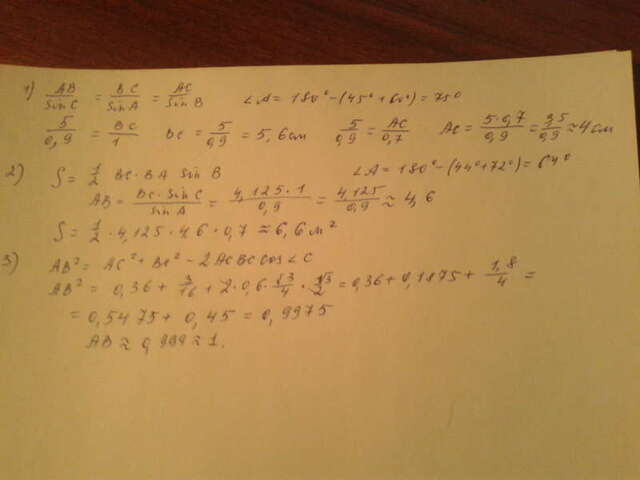 1) AB/Sin C = BC/Sin A = AC/Sin B ∠A = 180° - (45° + 60°) = 75°
5/0,9 = BC/1 BC = 5/0,9 = 5,6 см 5/0,9 = AC/0,7 AC = 5·0,7/0,9 = 3,5/0,9 ≈ 4 см
2) S = 1/2 BC · BA Sin B ∠A = 180° - (44° + 72°) = 64°
AB = BC · Sin C/Sin A = 4,125 · 1/0,9 = 4,125/0,9 ≈ 4,6
S = 1/2 · 4,125 · 4,6 · 0,7 ≈ 6,6 м²
3) AB² = AC² + BC² - 2 AC BC Cos ∠C
AB² = 0,36 + 3/16 + 2 · 0,6 · √3/4 · √3/2 = 0,36 + 0,1875 + 1,8/4 =
= 0,5475 + 0,45 = 0,9975
AB ≈ 0,999 ≈ 1.